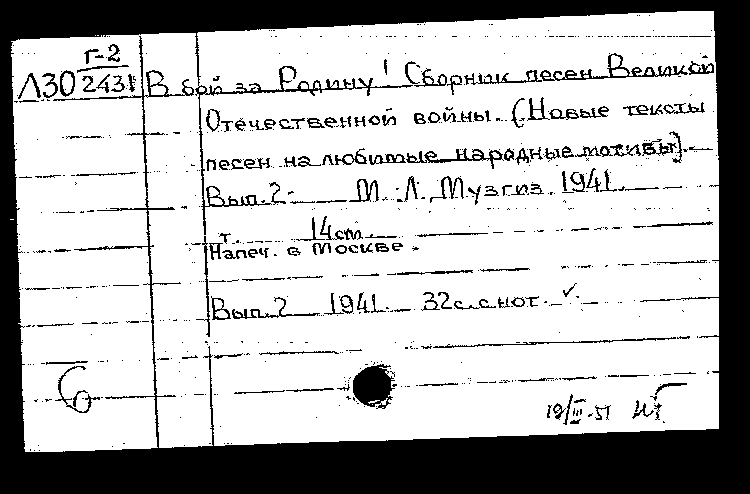 Г-2
Л30 2431 В бой за Родину! Сборник песен Великой
Отечественной войны. (Новые тексты
песен на любимые народные мотивы).
Вып. 2. М.-Л., Музгиз. 1941.
т. 14cm.
Напеч. в Москве.
Вып. 2 1941. 32 с. с нот. ✓.
19/III-51